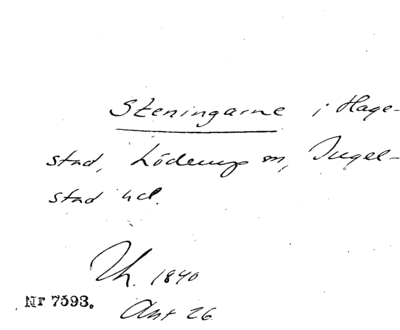 Steningarne i Hage-
stad, Löderup sn, Ingel-
stad hd.
Th. 1840
Nr 7593.
Ant 26